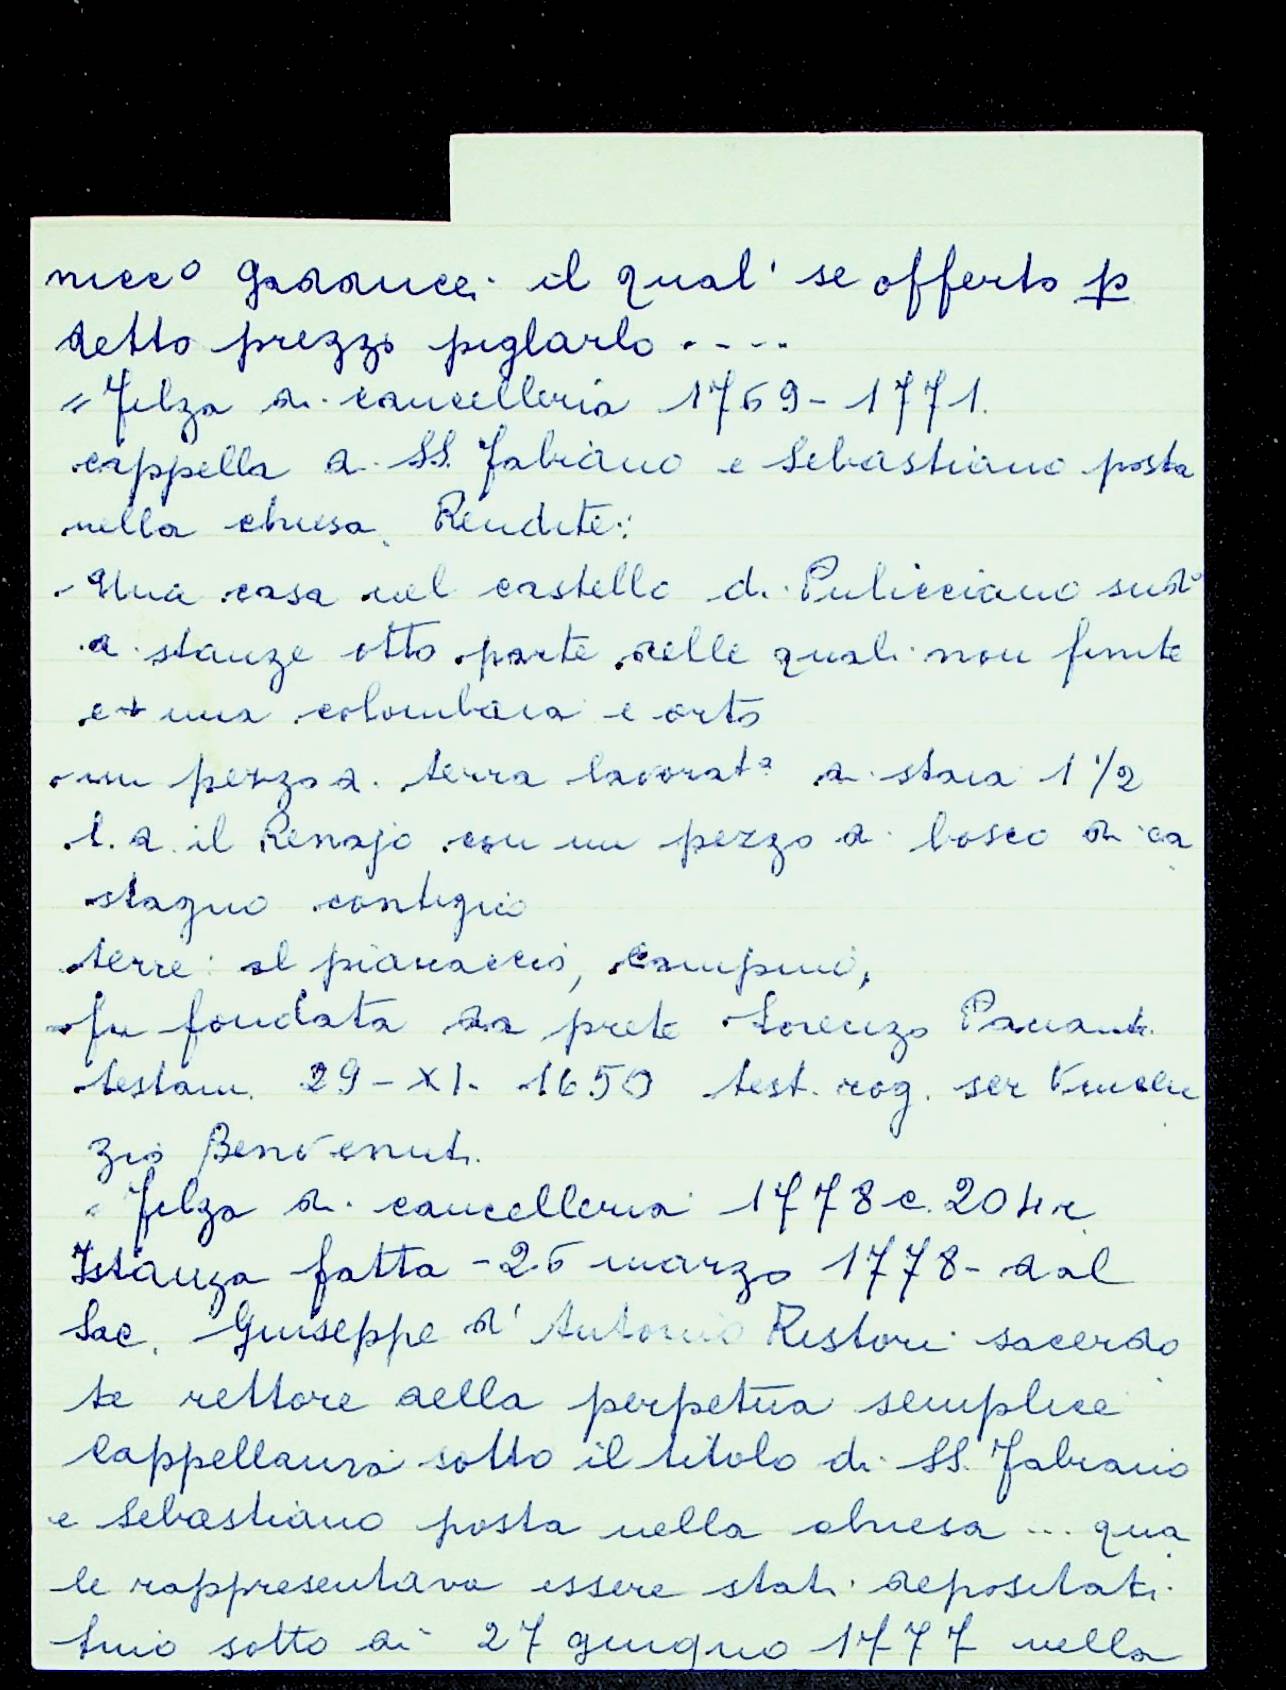 nicc° Gadducci il qual' se offerto p
detto prezzo piglarlo . - - -
" Filza di cancelleria 1769 - 1771.
cappella di SS. Fabiano e Sebastiano posta
nella chiesa. Rendite:
- Una casa nel castello di Pulicciano sud°
di stanze otto parte delle quali non finite
et una colombaia e orto
- un pezzo di terra lavorata di staia 1 1/2
l. d. il Renajo con un pezzo di bosco di ca
stagno contiguo
terre: al pianaccio, campino,
- fu fondata da prete Lorenzo Pananti
testam. 29 - XI - 1650 test. rog. ser Vincen
zio Benvenuti.
" Filza di cancelleria 1778 c. 204 r
Istanza fatta - 26 marzo 1778 - dal
Sac. Giuseppe d' Antonio Ristori sacerdo
te rettore della perpetua semplice
Cappellania sotto il titolo di SS. Fabiano
e Sebastiano posta nella chiesa ... qua
le rappresentava essere stati depositati
fino sotto dì 27 giugno 1777 nella